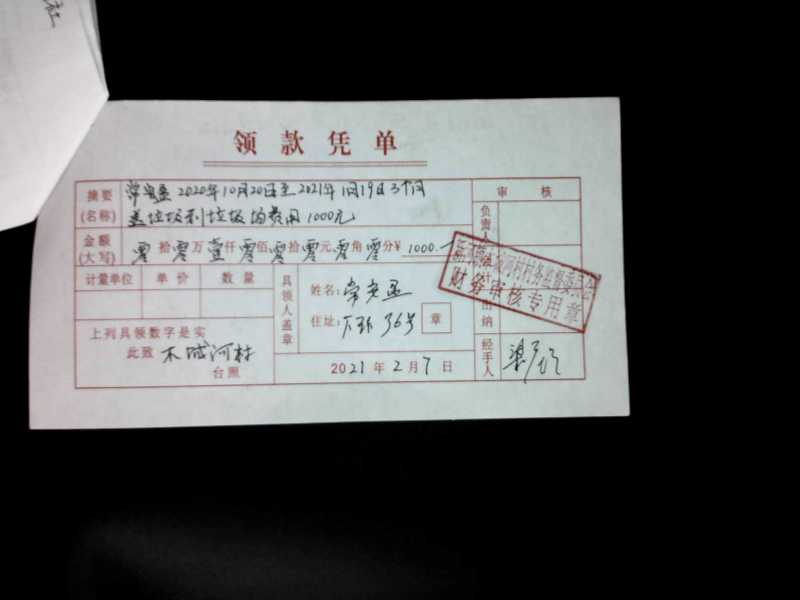 社
领款凭单
摘要 2020年10月20日至2021年1月19日3个月
(名称) 垃圾到垃圾场费用1000元
审核
金额
(大写) 零拾零万壹仟零佰零拾零元零角零分¥ 1000.
负责人
计量单位 单价 数量
具领人盖章
姓名:
住址: 36号 章
财务审核专用章
纳
上列具领数字是实
此致 木城河村
台照
2021年2月7日
经手人